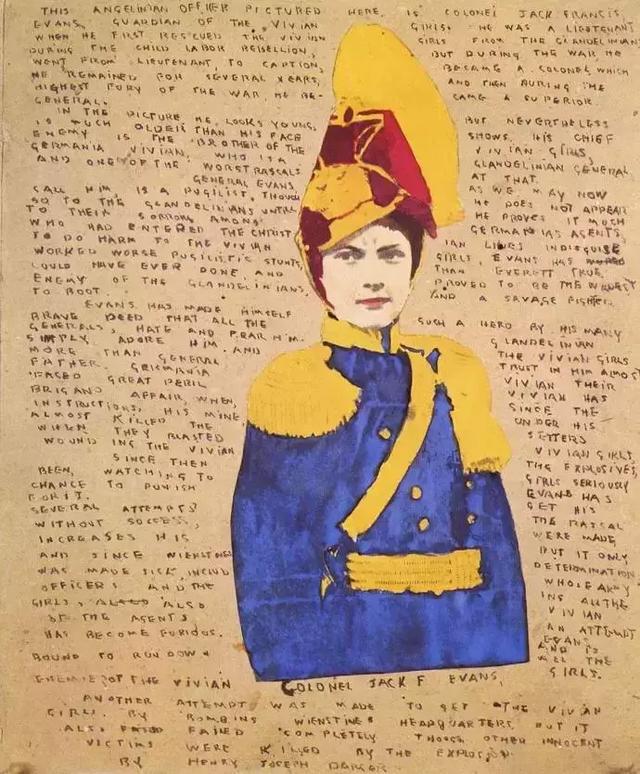 THIS ANGELINIAN OFFICER PICTURED HERE IS COLONEL JACK FRANCIS
EVANS, GUARDIAN OF THE VIVIAN GIRLS. HE WAS A LIEUTENANT
WHEN HE FIRST RESCUED THE VIVIAN GIRLS FROM THE GLANDELINIANS
DURING THE CHILD LABOR REBELLION, BUT DURING THE WAR HE
WENT FROM LIEUTENANT TO CAPTION, BECAME A COLONEL WHICH
HE REMAINED FOR SEVERAL YEARS, AND THEN DURING THE
HIGHEST FURY OF THE WAR HE BE- CAME A SUPERIOR
GENERAL.
IN THE PICTURE HE LOOKS YOUNG, BUT NEVERTHELESS
IS MUCH OLDER THAN HIS FACE SHOWS. HIS CHIEF
ENEMY IS THE BROTHER OF THE VIVIAN GIRLS,
GERMANIA VIVIAN, WHO IS A GLANDELINIAN GENERAL
AND ONE OF THE WORST RASCALS AT THAT.
GENERAL EVANS, AS WE MAY NOW
CALL HIM, IS A PUGILIST, THOUGH HE DOES NOT APPEAR
SO TO THE GLANDELINIANS UNTIL HE PROVES IT MUCH
TO THEIR SORROW. AMONG GERMANIAS AGENTS,
WHO HAD ENTERED THE CHRIST IAN LINES IN DISGUISE
TO DO HARM TO THE VIVIAN GIRLS, EVANS HAS
WORKED WORSE PUGILISTIC STUNTS THAN EVERETT TRUE
COULD HAVE EVER DONE AND PROVED TO BE THE WORST
ENEMY OF THE GLANDELINIANS, AND A SAVAGE FIGHTER
TO BOOT.
EVANS HAS MADE HIMSELF SUCH A HERO BY HIS MANY
BRAVE DEED THAT ALL THE GLANDELINIAN
GENERALS, HATE AND FEAR HIM. THE VIVIAN GIRLS
SIMPLY ADORE HIM. AND TRUST IN HIM ALMOST
MORE THAN GENERAL VIVIAN THEIR
FATHER. GERMANIA VIVIAN HAS
FACED GREAT PERIL SINCE THE
BRIGAND AFFAIR, WHEN, UNDER HIS
INSTRUCTIONS, HIS MINE SETTERS
ALMOST KILLED THE VIVIAN GIRLS,
WHEN THEY BLASTED THE EXPLOSIVES,
WOUND ING THE VIVIAN GIRLS SERIOUSLY
SINCE THEN EVANS HAS
BEEN, WATCHING TO GET HIS
CHANCE TO PUNISH THE RASCAL
FOR IT. WERE MADE
SEVERAL ATTEMPTS BUT IT ONLY
WITHOUT SUCCESS, DETERMINATION
INCREASES HIS WHOLE ARMY
AND SINCE WIENSTINES
WAS MADE SICK, INCLUD ING ALL THE
OFFICERS AND THE VIVIAN
GIRLS, ALSO AN ATTEMPT
OF THE AGENTS EVANS
HAS BECOME FURIOUS. AND IS
BOUND TO RUN DOWN ALL THE
ENEMIES OF THE VIVIAN GIRLS.
COLONEL JACK F EVANS,
ANOTHER ATTEMPT WAS MADE TO GET THE VIVIAN
GIRLS BY BOMBING WIENSTINES HEADQUARTERS. BUT IT
ALSO FAILED COMPLETELY THOUGH OTHER INNOCENT
VICTIMS WERE KILLED BY THE EXPLOSION.
BY HENRY JOSEPH DARGER